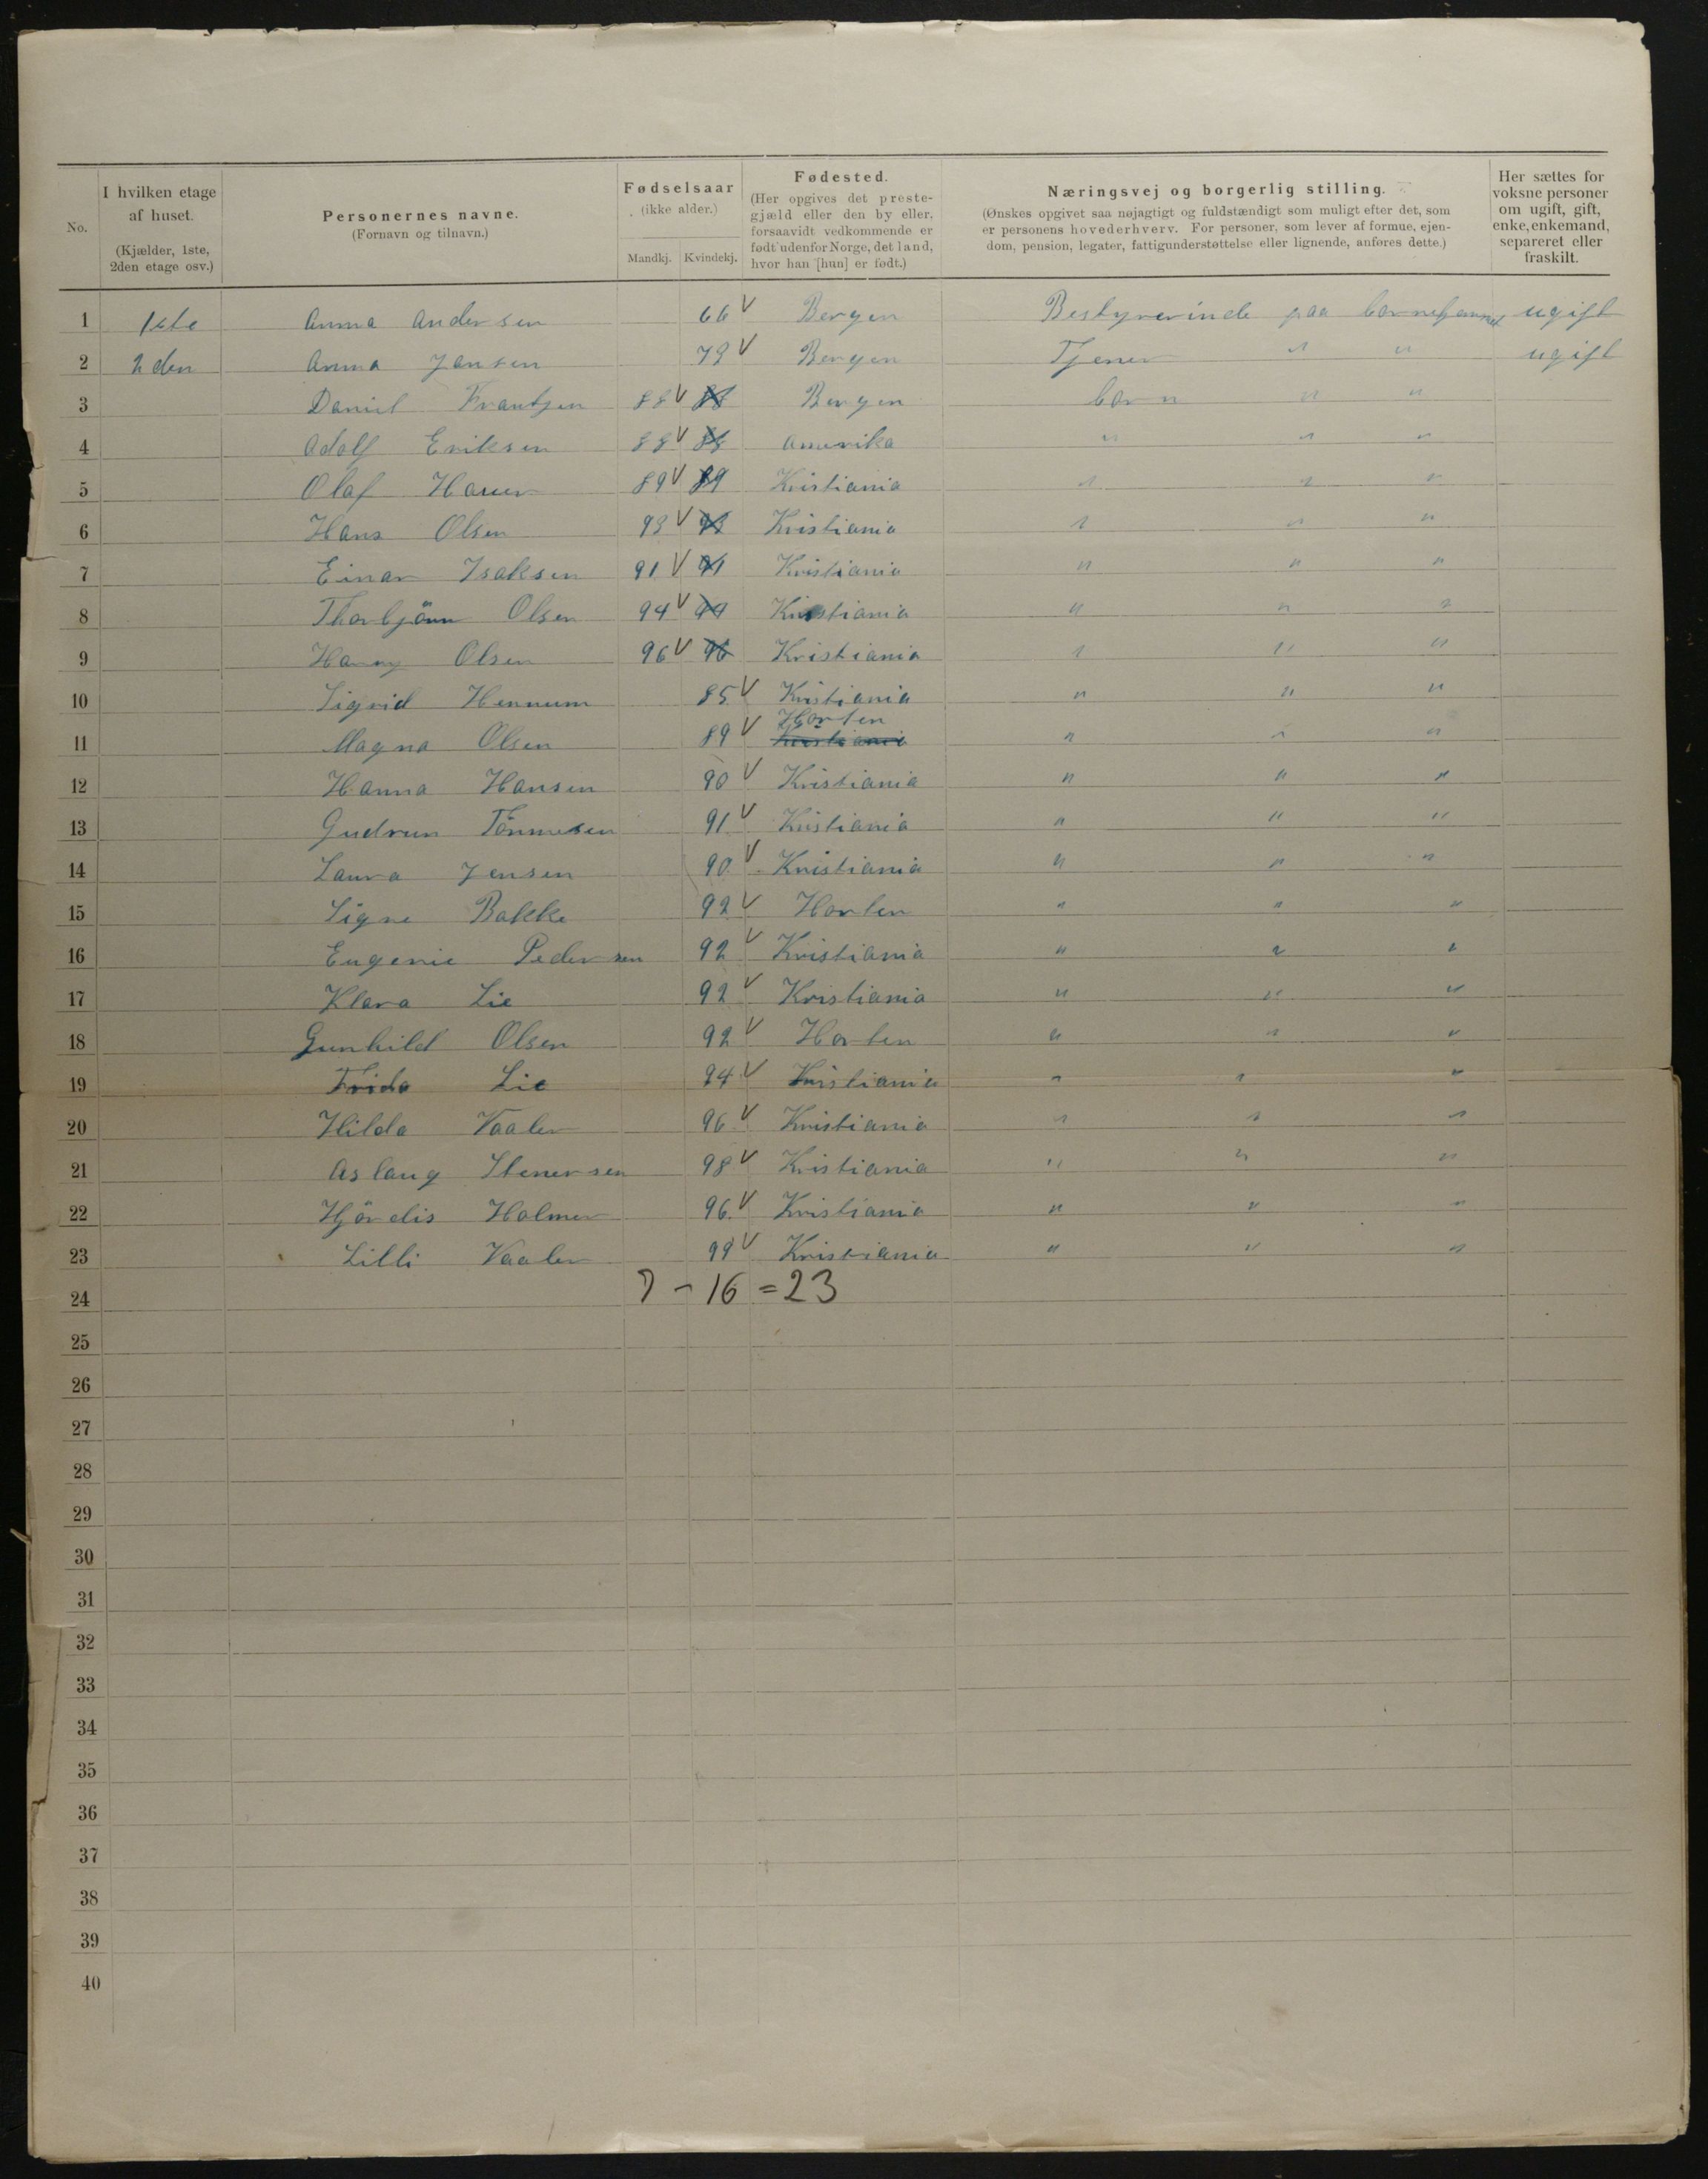 No.
I hvilken etage af huset. (Kjælder, 1ste, 2den etage osv.)
Personernes navne. (Fornavn og tilnavn.)
Fødselsaar (ikke alder.) Mandkj. Kvindekj.
Fødested. (Her opgives det prestegjæld eller den by eller, forsaavidt vedkommende er født udenfor Norge, det land, hvor han [hun] er født.)
Næringsvej og borgerlig stilling. (Ønskes opgivet saa nøjagtigt og fuldstændigt som muligt efter det, som er personens hovederhverv. For personer, som lever af formue, ejendom, pension, legater, fattigunderstøttelse eller lignende, anføres dette.)
Her sættes for voksne personer om ugift, gift, enke, enkemand, separeret eller fraskilt.
1 1ste Anna Andersen 66 V Bergen Bestyrerinde paa barnehjemmet ugift
2 2den Anna Jansen V Bergen Tjener " " ugift
3 Daniel Frantzen 88 V 88 Bergen barn " "
4 Adolf Eriksen 88 V 88 Amerika " " "
5 Olaf 89 V 89 Kristiania " " "
6 Hans Olsen 93 V 93 Kristiania " " "
7 Einar Isaksen 91 V 91 Kristiania " " "
8 Thorbjörn Olsen 94 V 94 Kristiania " " "
9 Harry Olsen 96 V 96 Kristiania " " "
10 Sigrid Hennum 85 V Kristiania " " "
11 Magna Olsen 89 V Horten Kristiania " " "
12 Hanna Hansen 90 V Kristiania " " "
13 Gudrun Tönnesen 91 V Kristiania " " "
14 Laura Jensen 90 V Kristiania " " "
15 Signe Bakke 92 V Horten " " "
16 Eugenie Pedersen 92 V Kristiania " " "
17 Klara Lie 92 V Kristiania " " "
18 Gunhild Olsen 92 V Horten " " "
19 Frida Lie 94 V Kristiania " " "
20 Hilda Vaaler 96 V Kristiania " " "
21 Aslaug Stenersen 98 V Kristiania " " "
22 Hjördis Holmer 96 V Kristiania " " "
23 Lilli Vaaler 99 V Kristiania " " "
24 7 - 16 = 23
25
26
27
28
29
30
31
32
33
34
35
36
37
38
39
40